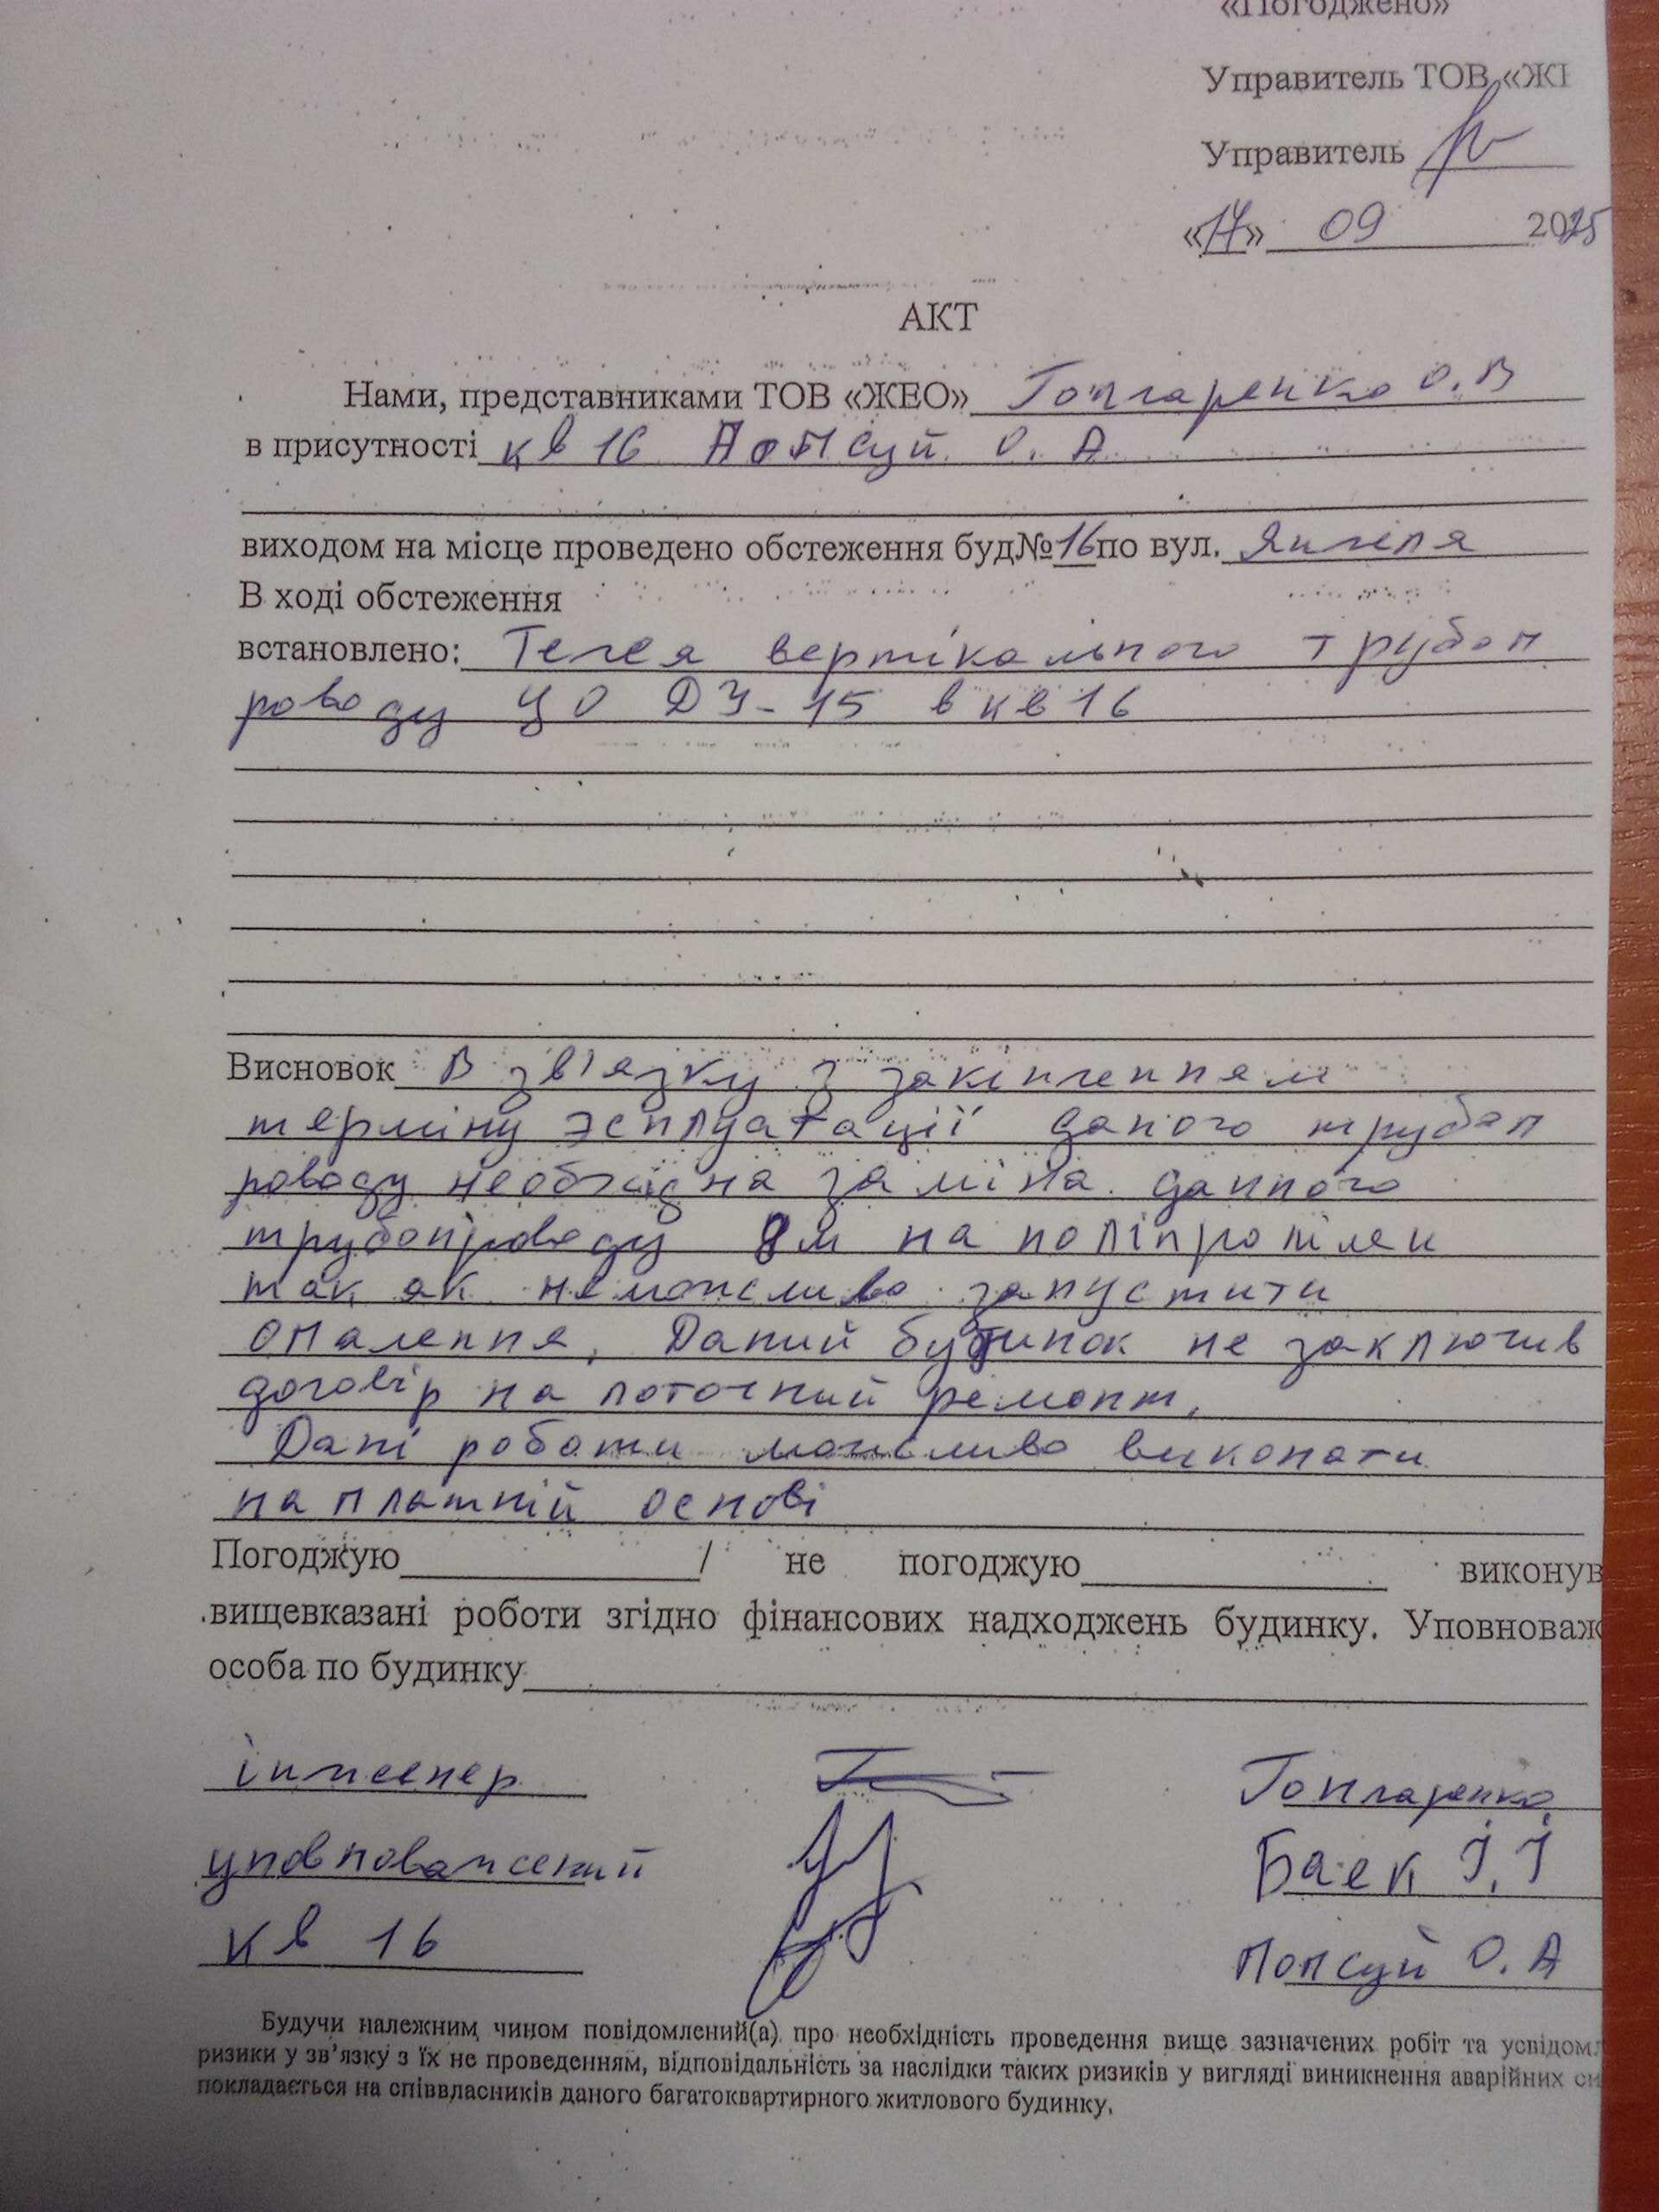 «Погоджено»
Управитель ТОВ «ЖЕ
Управитель
«17» 09 2025
АКТ
Нами, представниками ТОВ «ЖЕО» Гончаренко О.В
в присутності кв 16 Попсуй О. А
виходом на місце проведено обстеження буд№16 по вул. Янгеля
В ході обстеження
встановлено: Течея вертікального трубоп
роводу ЦО ДУ-15 в кв 16
Висновок В зв'язку з закінченням
терміну эсплуатації даного трубоп
роводу необхідна заміна данного
трубопроводу 8м на поліпропілен
так як неможливо запустити
опалення, Даний будинок не заключив
договір на поточний ремонт,
Дані роботи можливо виконати
на платній основі
Погоджую / не погоджую виконув
вищевказані роботи згідно фінансових надходжень будинку. Уповноваж
особа по будинку
інженер Гончаренко
уповноважений Баек І.І
кв 16 Попсуй О.А
Будучи належним чином повідомлений(а) про необхідність проведення вище зазначених робіт та усвідомл
ризики у зв'язку з їх не проведенням, відповідальність за наслідки таких ризиків у вигляді виникнення аварійних си
покладається на співвласників даного багатоквартирного житлового будинку.